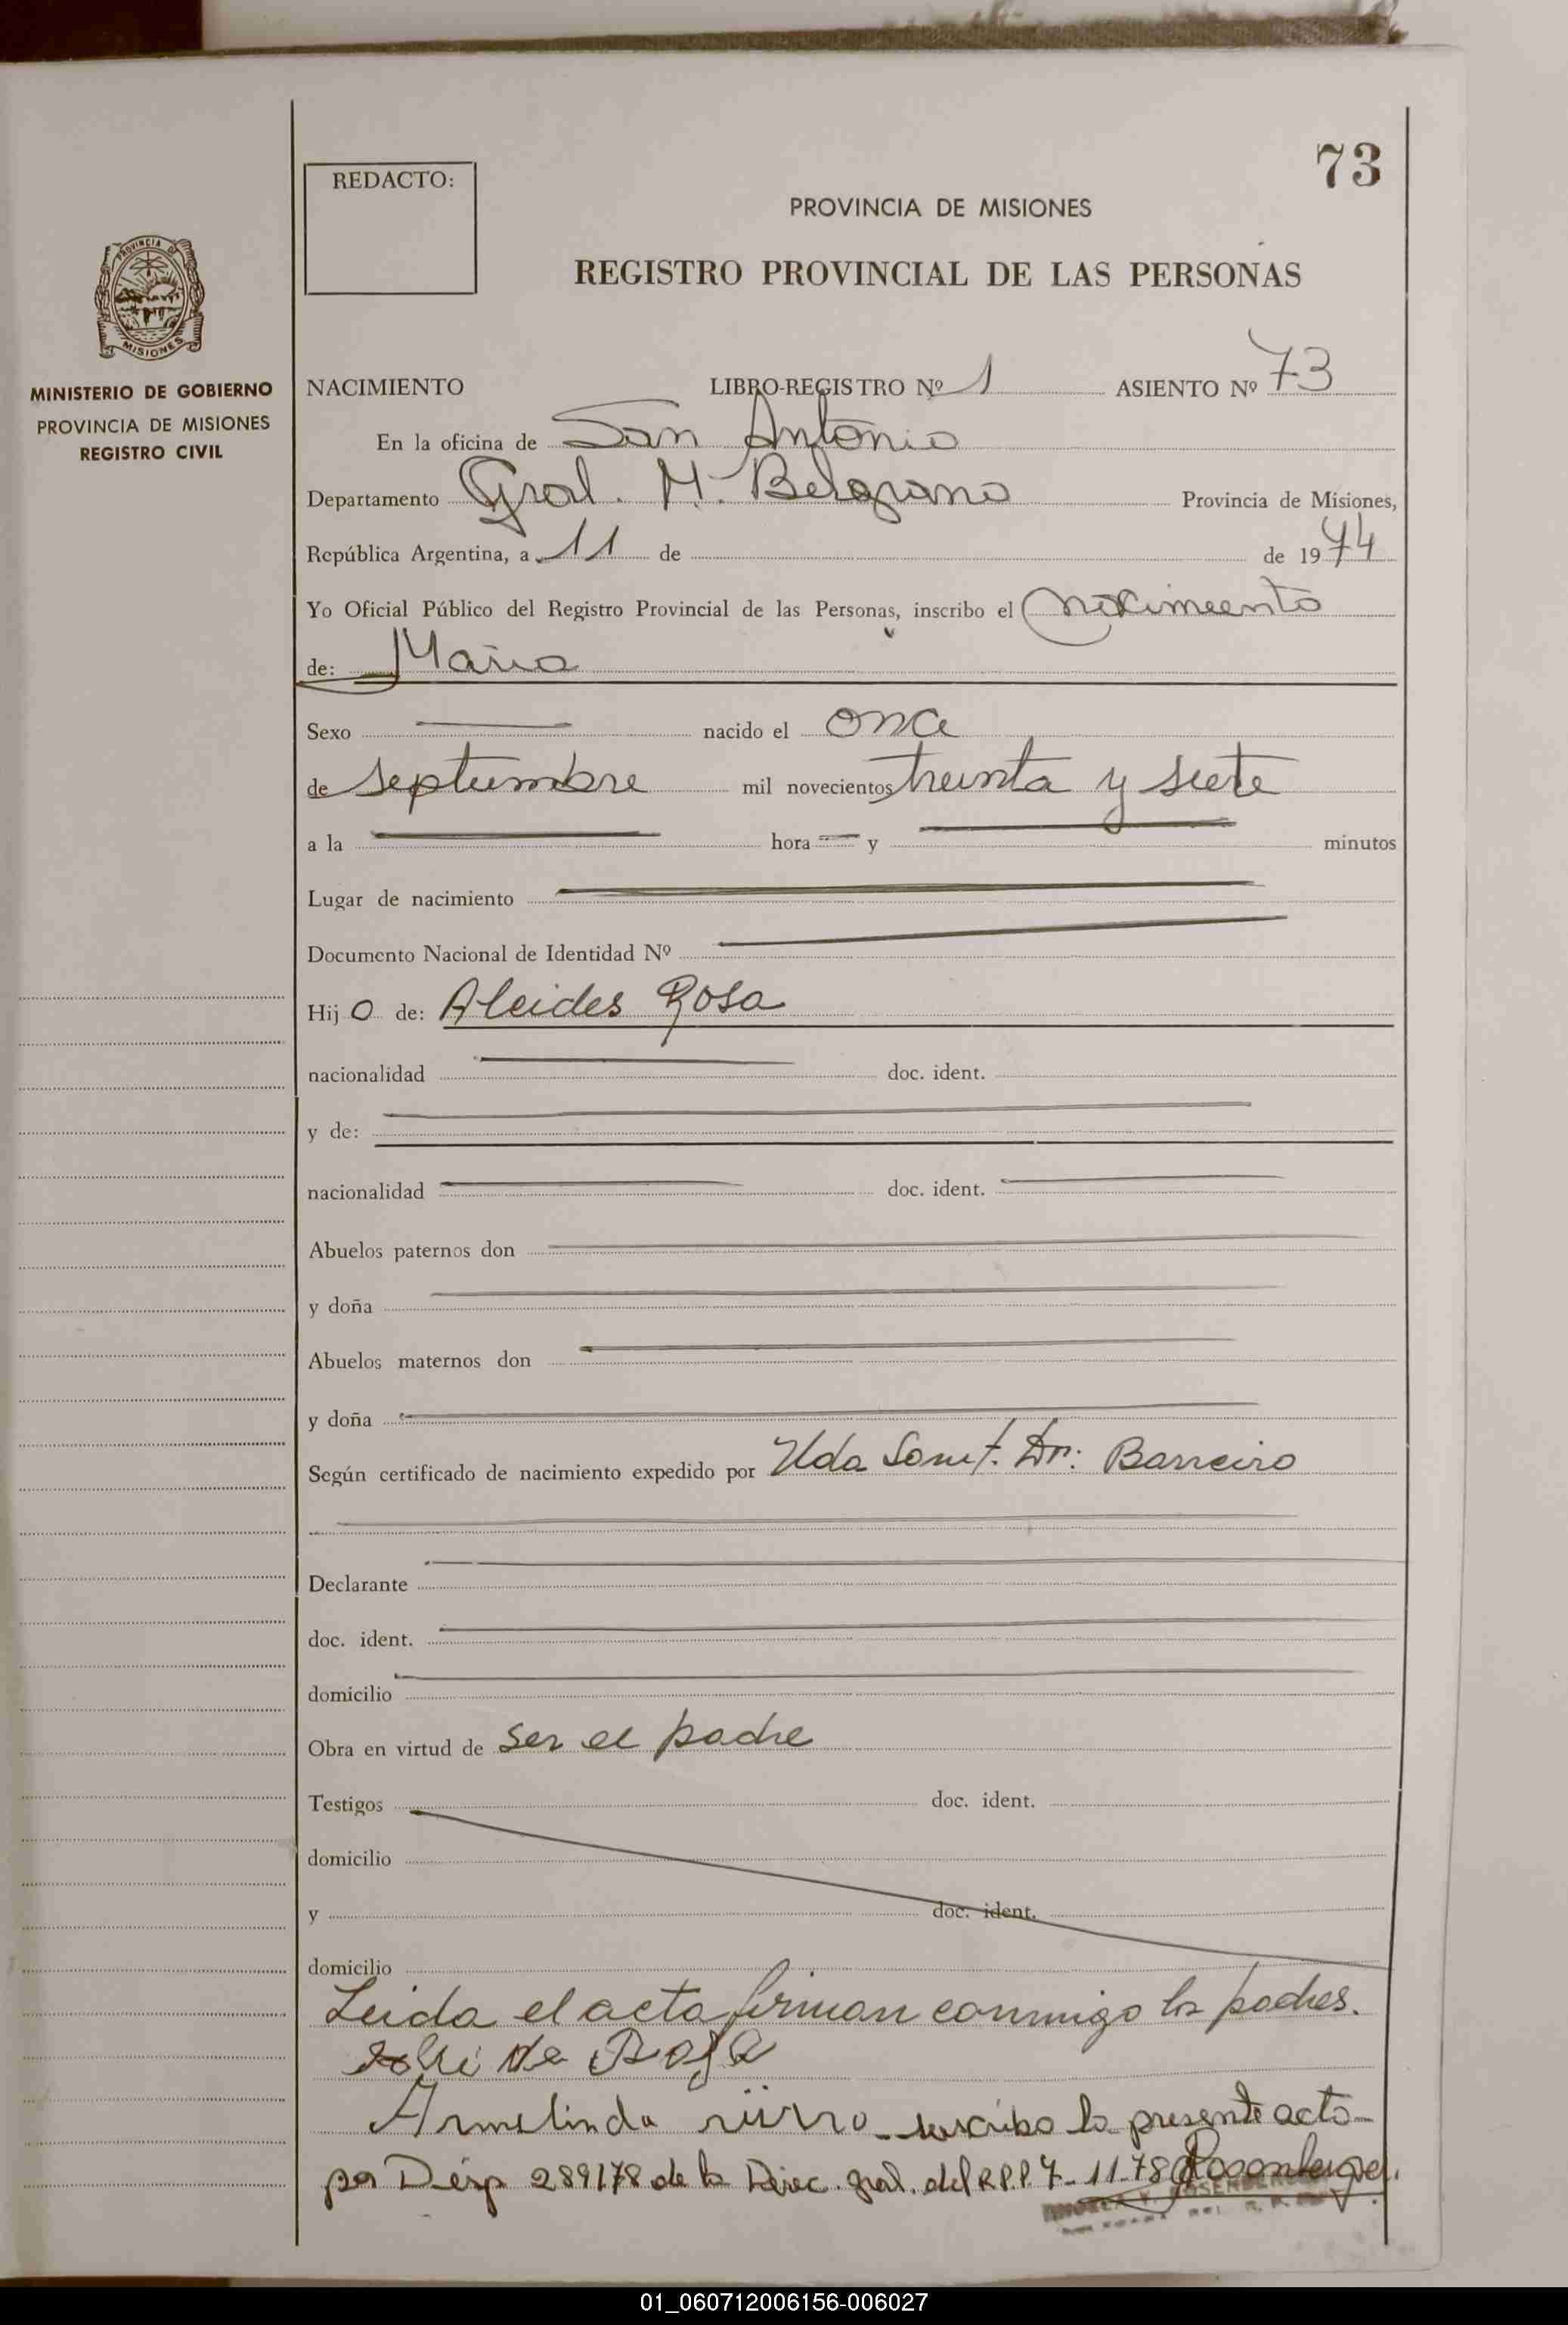 73
REDACTO:
PROVINCIA DE MISIONES
REGISTRO PROVINCIAL DE LAS PERSONAS
PROVINCIA DE
MISIONES
MINISTERIO DE GOBIERNO
PROVINCIA DE MISIONES
REGISTRO CIVIL
NACIMIENTO LIBRO-REGISTRO Nº 1 ASIENTO Nº 73
En la oficina de San Antonio
Departamento Gral. M. Belgrano Provincia de Misiones,
República Argentina, a 11 de de 1974
Yo Oficial Público del Registro Provincial de las Personas, inscribo el
de: Maria
Sexo nacido el once
de septiembre mil novecientos treinta y siete
a la hora y minutos
Lugar de nacimiento
Documento Nacional de Identidad Nº
Hij o de: Alcides Rosa
nacionalidad doc. ident.
y de:
nacionalidad doc. ident.
Abuelos paternos don
y doña
Abuelos maternos don
y doña
Según certificado de nacimiento expedido por Dr: Barreiro
Declarante
doc. ident.
domicilio
Obra en virtud de ser el padre
Testigos doc. ident.
domicilio
y doc. ident.
domicilio
Leida el acta firman conmigo los padres.
Armelinda suscribo la presente acta
por Disp 289178 de la Direc. gral. del R.P.P. 7-11-78
01_060712006156-006027